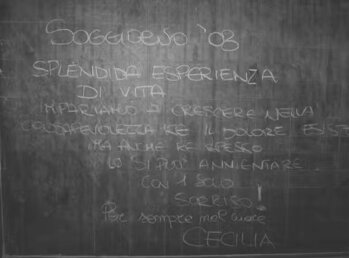 SOGGIORNO '08
SPLENDIDA ESPERIENZA
DI VITA
IMPARIAMO A CRESCERE NELLA
CONSAPEVOLEZZA KE IL DOLORE ESISTE
MA ANCHE KE SPESSO
LO SI PUO' ANNIENTARE
CON 1 SOLO
SORRISO!
Per sempre nel cuore
CECILIA